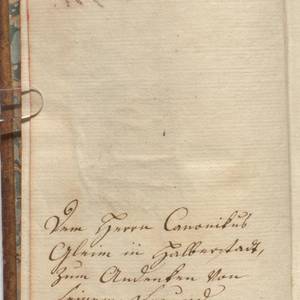 Dem Herrn Canonikus
Gleim in Halberstadt,
zum Andenken von
seinem Freund